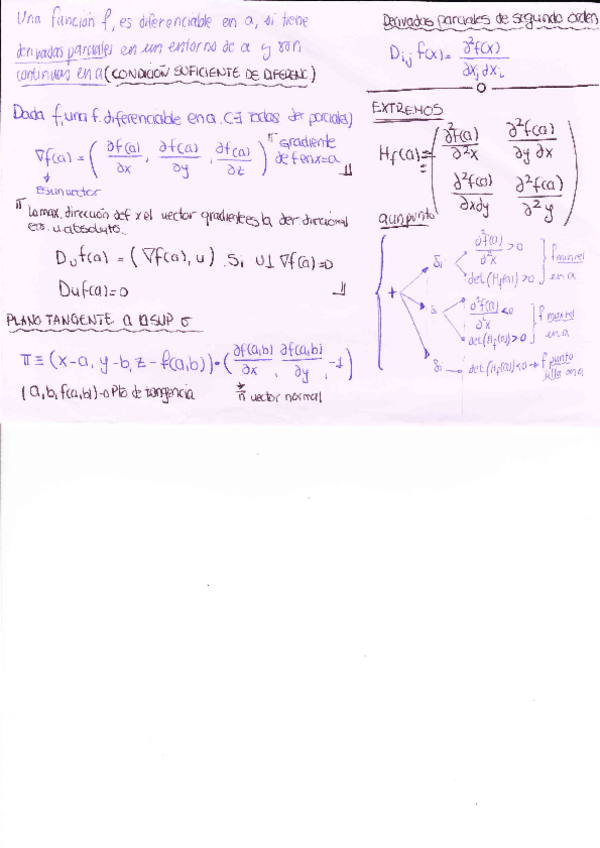 Una función f, es diferenciable en a, si tiene
derivadas parciales en un entorno de a y son
continuas en a (CONDICIÓN SUFICIENTE DE DIFERENC)
Dada f, una f. diferenciable en a. (∃ todas der parciales)
∇f(a) = ( ∂f(a)/∂x , ∂f(a)/∂y , ∂f(a)/∂z ) Gradiente
de f en x=a
Es un vector
La max. dirección de f x el vector gradiente es la der direccional
en v. absoluto.
Duf(a) = (∇f(a), u). Si u⊥∇f(a)=0
Duf(a)=0
PLANO TANGENTE A SUP σ
π ≡ (x-a, y-b, z-f(a,b)) · ( ∂f(a,b)/∂x , ∂f(a,b)/∂y , -1 )
(a, b, f(a,b)) → Pto de tangencia n vector normal
Derivadas parciales de segundo orden
Di,j f(x) = ∂²f(x) / ∂xj ∂xi
EXTREMOS
Hf(a) = ( ∂²f(a)/∂²x ∂²f(a)/∂y∂x
∂²f(a)/∂x∂y ∂²f(a)/∂²y )
a un punto
Si ∂²f(a)/∂²x > 0
det(Hf(a)) > 0 f min rel en a
Si ∂²f(a)/∂²x < 0
det(Hf(a)) > 0 f max rel en a
Si det(Hf(a)) < 0 → f punto
silla en a